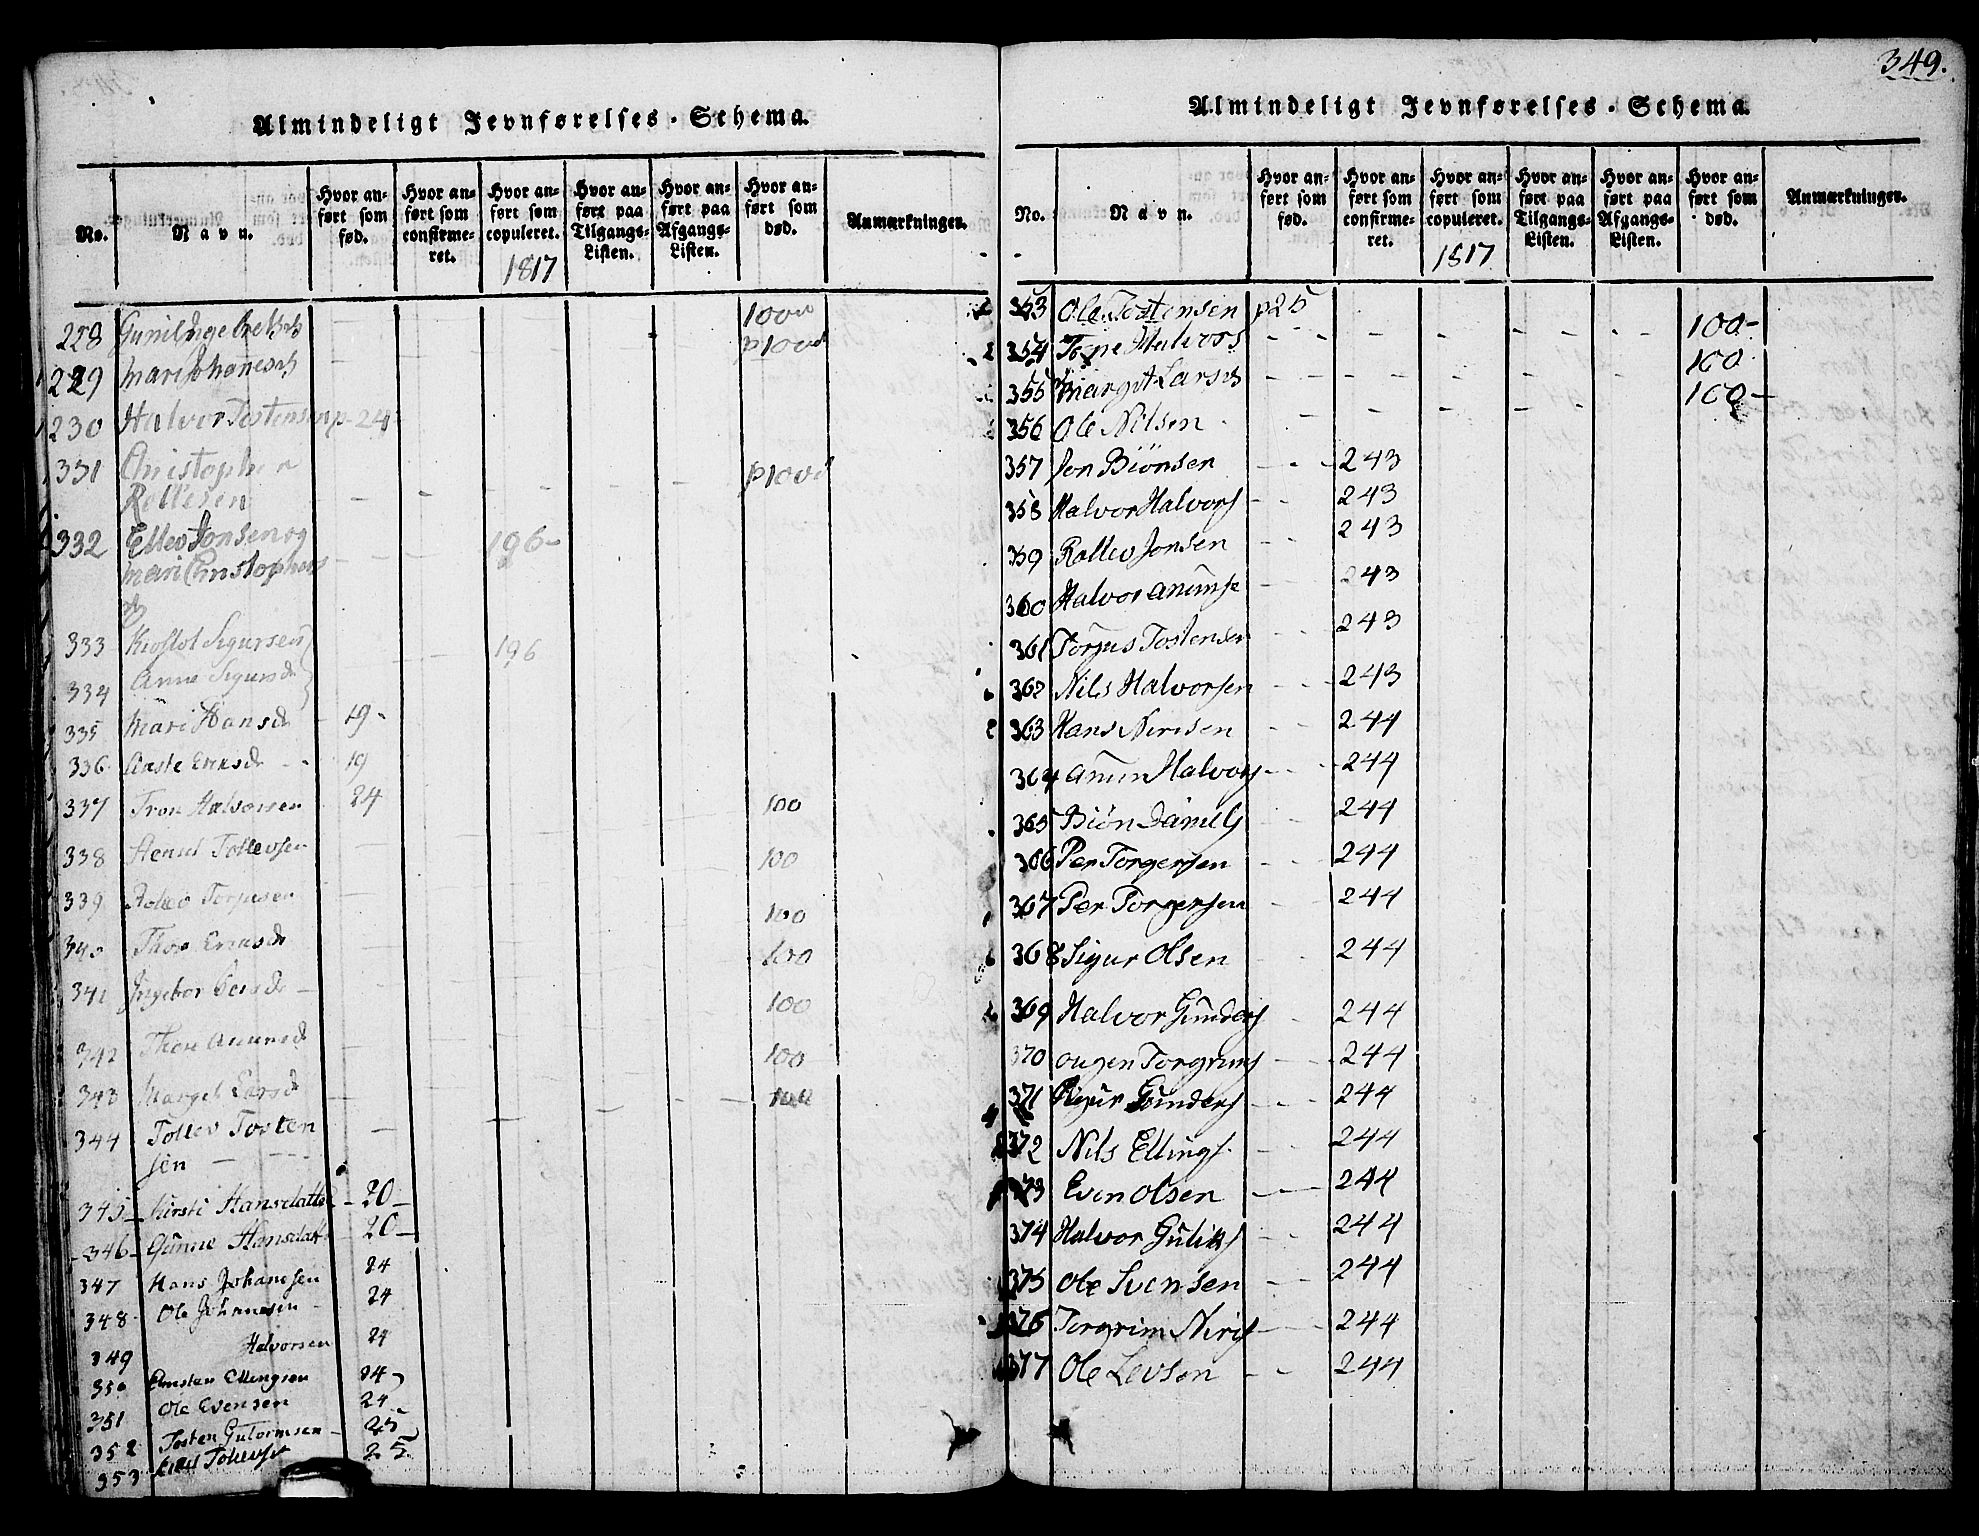 349.
Almindeligt Jevnførelses-Schema.
No.
Navn.
Hvor anført som fød.
Hvor anført som confirmeret.
Hvor anført som copuleret.
1817
Hvor anført paa Tilgangs-Listen.
Hvor anført paa Afgangs-Listen.
Hvor anført som død.
Anmærkninger.
228 100
229 Mari Johanesd p100
230 Halvor Tostensen p 24
331 Christopher
Rollesen p100
332 Ellev Jonsen og 196
Mari Christophers
333 Kiostol Sigursen 196
334 Anne Sigursd
335 Mari Hansd 19
336 Aaste Eriksd 19
337 Tron Halvorsen 24 100
338 Tollevsen 100
339 Rollev Torjusen 100
340 Eriksd 100
341 Ingebor 100
342 Thore 100
343 Marget Larsd 100
344 Tollev Tosten
sen
345 Kirsti Hansdatter 20
346 Gunne Hansdatt 20
347 Hans Johansen 24
348 Ole Johansen 24
349 Halvorsen 24
350 Ellingsen 24
351 Ole Evensen 24
352 Tosten Gutormsen 25
353 25
Almindeligt Jevnførelses-Schema.
No.
Navn.
Hvor anført som fød.
Hvor anført som confirmeret.
Hvor anført som copuleret.
1817
Hvor anført paa Tilgangs-Listen.
Hvor anført paa Afgangs-Listen.
Hvor anført som død.
Anmærkninger.
353 Ole Tostensen p25
354 Tone Halvors 100
355 Margit Larsd 100
356 Ole Nilsen 100
357 Jon Biönsen 243
358 Halvor Halvors 243
359 Rollev Jonsen 243
360 Halvor 243
361 Torjus Tostensen 243
362 Nils Halvorsen 243
363 Hans Nirisen 244
364 Halvors 244
365 Biön Daniels 244
366 Per Torgersen 244
367 Per Torgersen 244
368 Sigur Olsen 244
369 Halvor Gunders 244
370 Torgrims 244
371 Gunders 244
372 Nils Ellings 244
373 Even Olsen 244
374 Halvor Guliks 244
375 Ole Svensen 244
376 Torgrim Niris 244
377 Ole Levsen 244